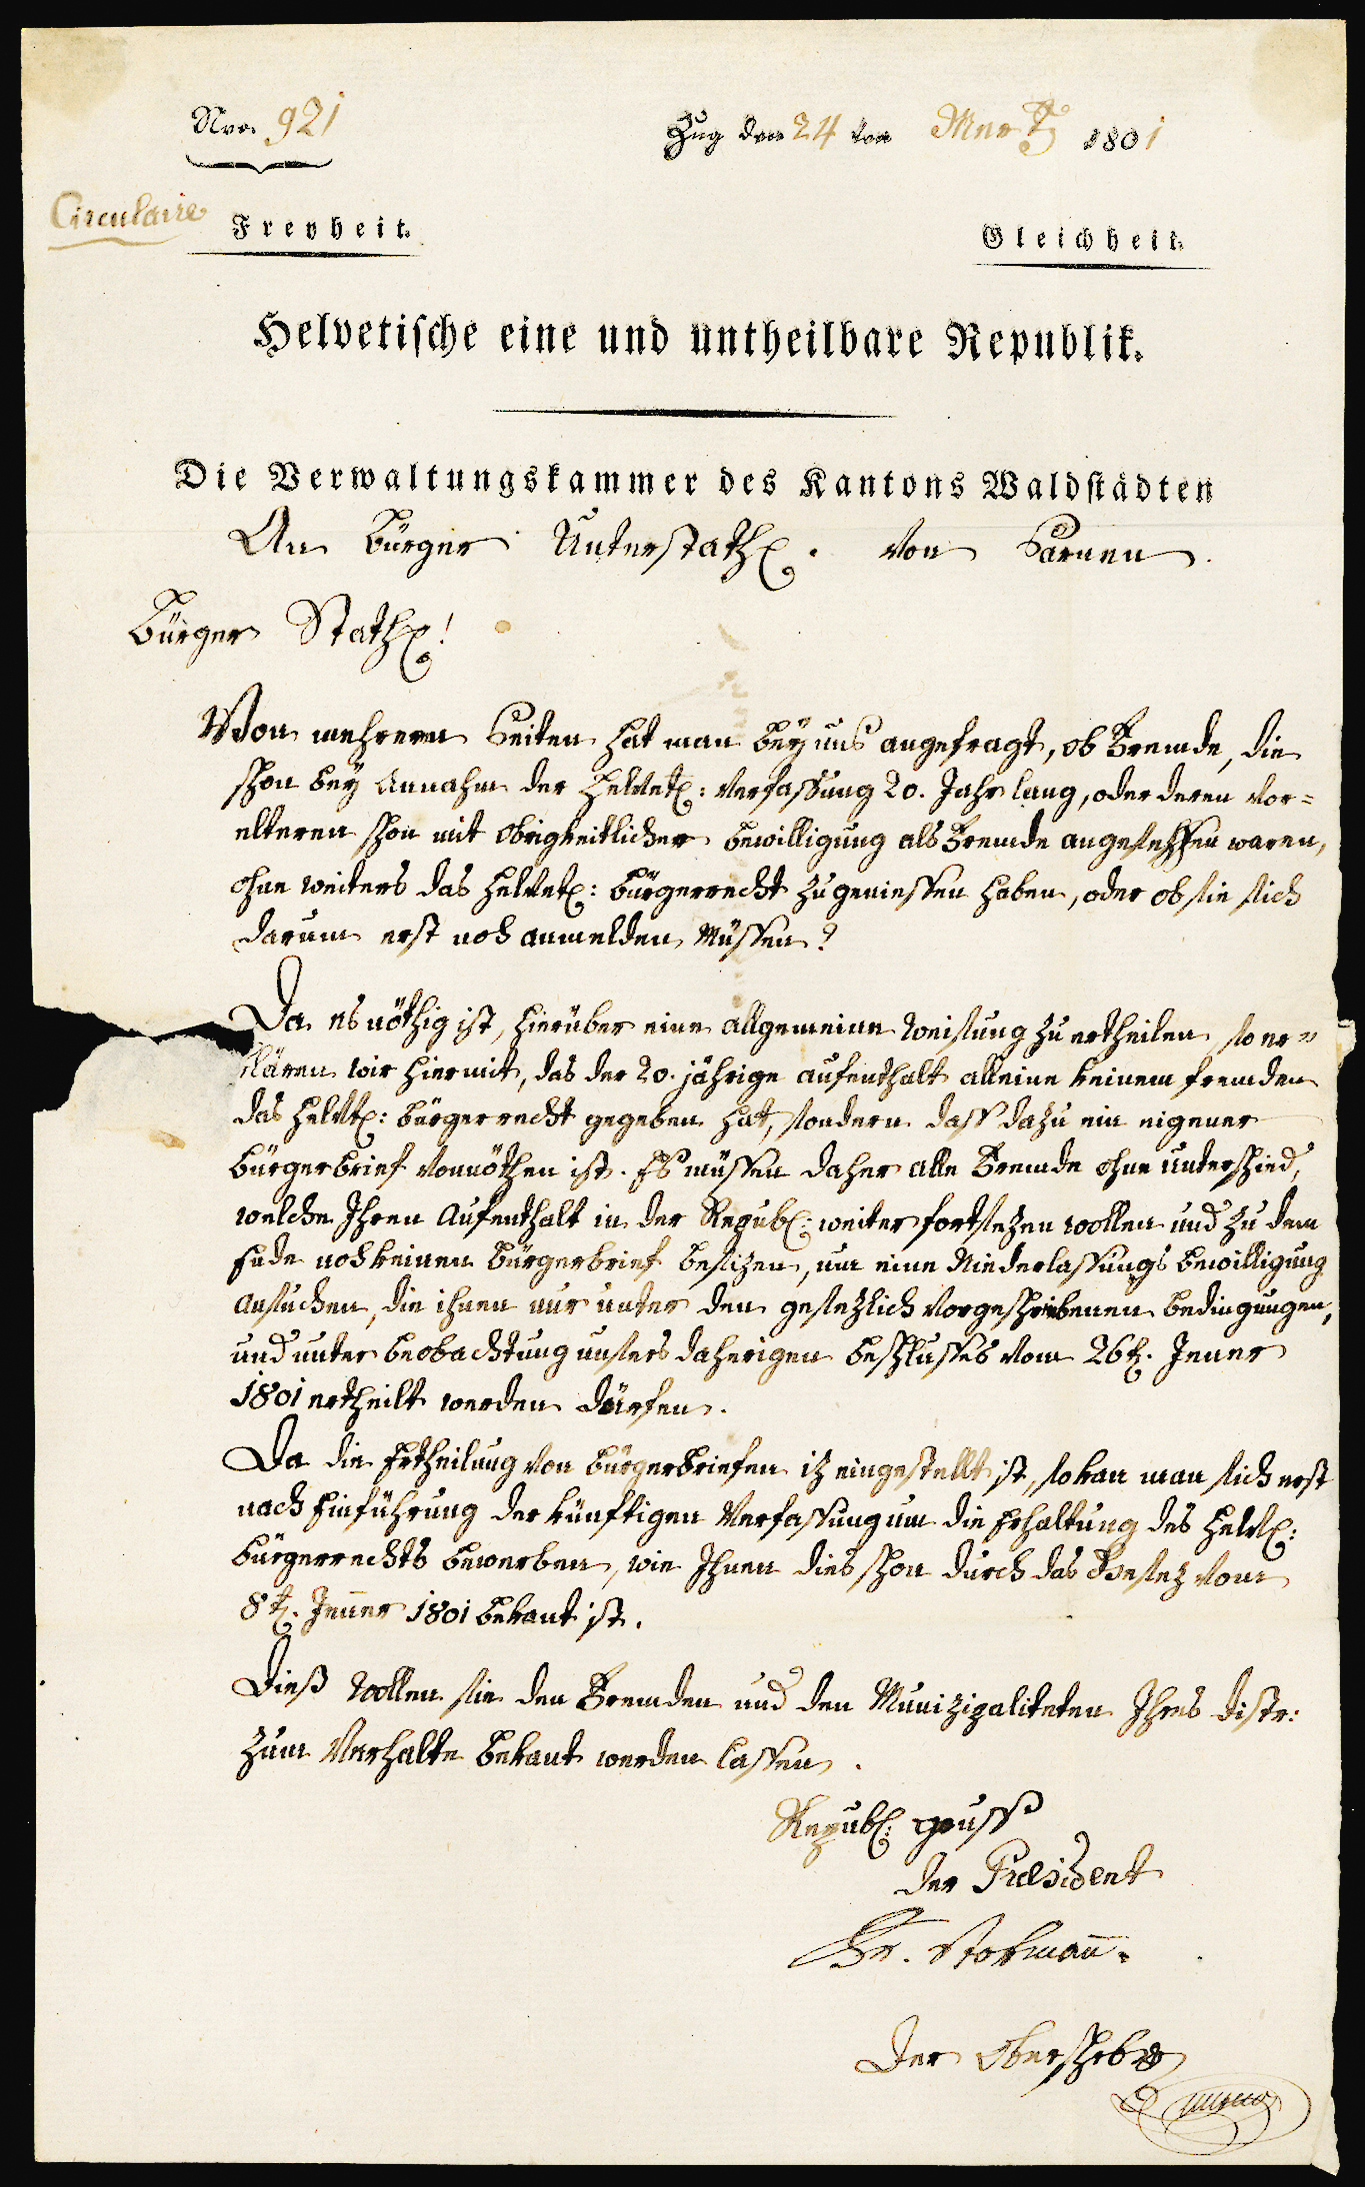 Nro. 921
Zug den 24 ten Merz 1801
Circulaire
Freyheit.
Gleichheit.
Helvetische eine und untheilbare Republik.
Die Verwaltungskammer des Kantons Waldstädten
An Bürger Unterstath. von Sarnen.
Bürger Stath!
Von mehreren Seiten hat man bey uns angefragt, ob Fremde, die
schon bey Annahm der Helvet: Verfassung 20. Jahr lang, oder deren Vor=
elteren schon mit Obrigkeitlicher Bewilligung als Fremde angesessen waren,
ohne weiters das Helvet: Bürgerrecht zu geniessen haben, oder ob sie sich
darum erst noch anmelden Müssen?
Da es nöthig ist, hierüber eine allgemeine Weisung zu ertheilen, so er=
klären wir hiermit, das der 20. jährige aufenthalt alleine keinem fremden
das Helvt: Bürgerrecht gegeben hat, sondern dass dazu ein eigener
Bürgerbrief vonnöthen ist. Es müssen daher alle Fremde ohne unterschied,
welche Ihren Aufenthalt in der Republ: weiter fortsezen wollen und zu dem
Ende noch keinen Bürgerbrief besizen, um eine Niederlassungs Bewilligung
Ansuchen, die ihnen nur unter den gesezlich vorgeschriebenen Bedingungen,
und unter Beobachtung unsers daherigen Beschlusses vom 26t. Jener
1801 ertheilt werden dürfen.
Da die Ertheilung von Bürgerbriefen iz eingestellt ist, so kan man sich erst
nach Einführung der künftigen Verfassung um die Erhaltung des Helv:
Bürgerrechts bewerben, wie Ihnen dies schon durch das Gesez vom
8t. Jener 1801 bekant ist.
Dieß wollen sie den Fremden und den Munizipaliteten Ihres Distr:
zum Verhalte bekant werden lassen.
Republ: gruss
Der Præsident
Fr. Stokmañ.
Der Oberschrbr